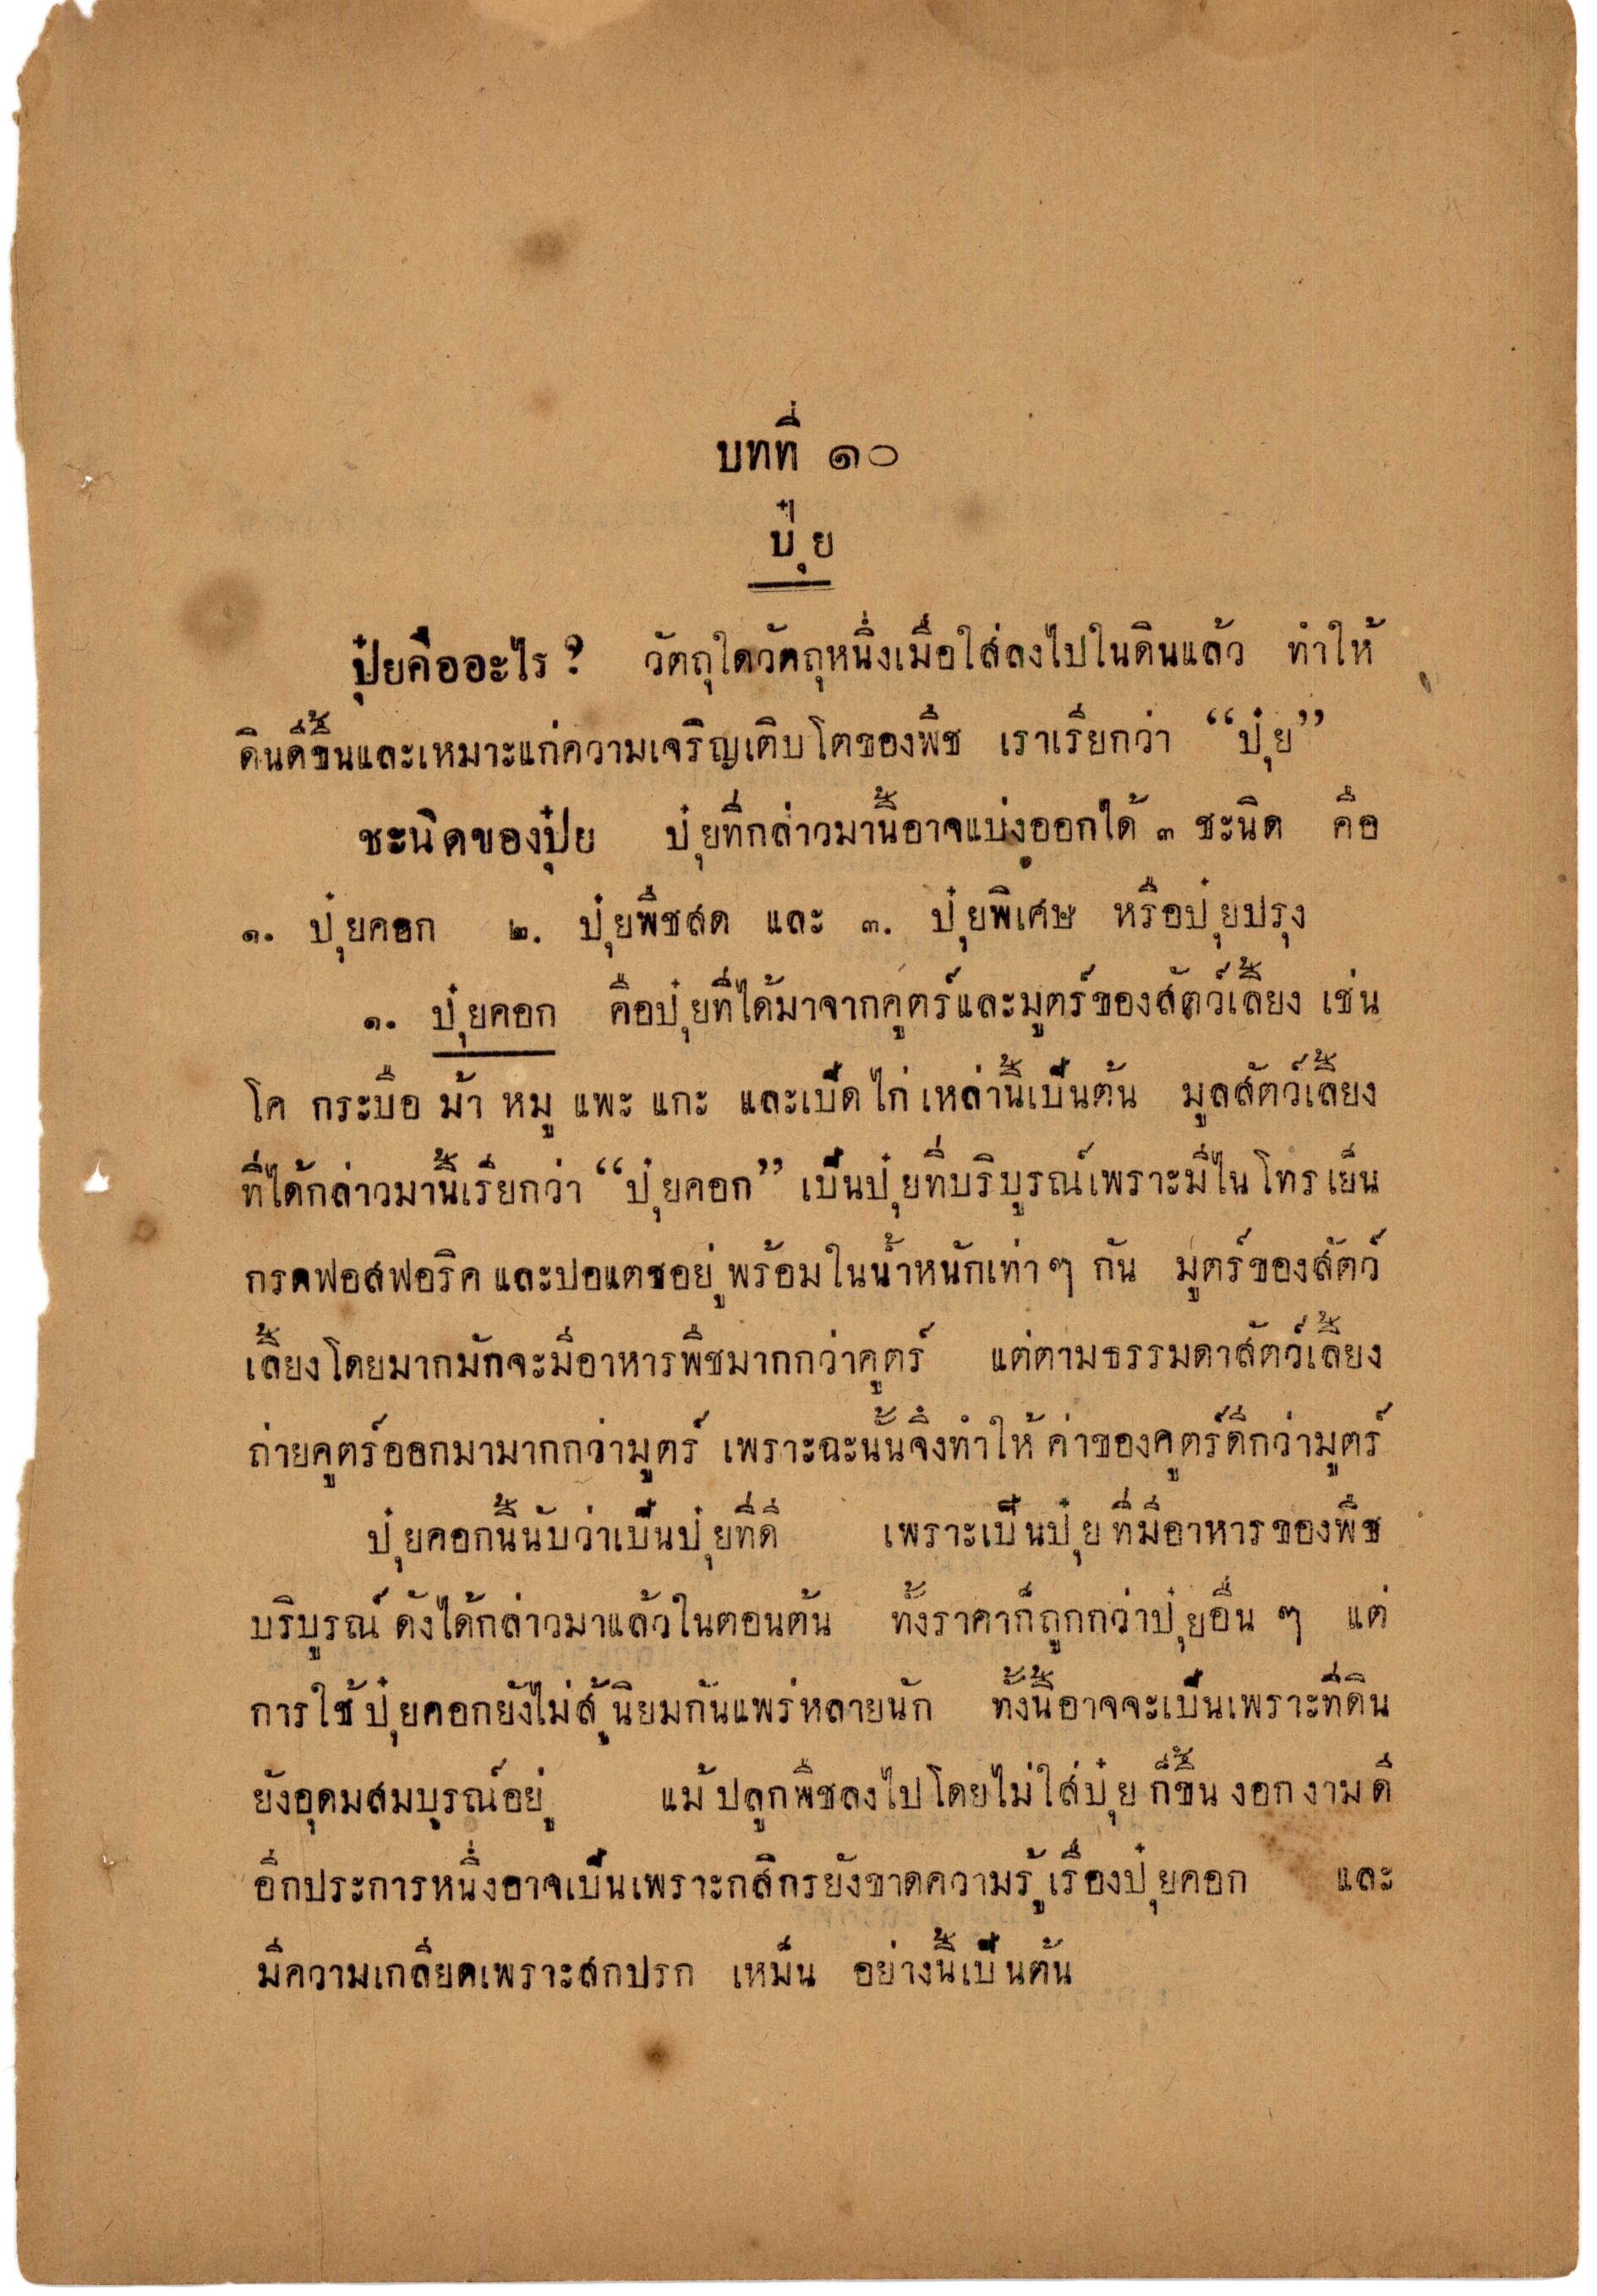 บทที่ ๑๐
ปุ๋ย
ปุ๋ยคืออะไร ? วัตถุใดวัตถุหนึ่งเมื่อใส่ลงไปในดินแล้ว ทำให้
ดินดีขึ้นและเหมาะแก่ความเจริญเติบโตของพืช เราเรียกว่า “ปุ๋ย”
ชะนิดของปุ๋ย ปุ๋ยที่กล่าวมานี้อาจแบ่งออกได้ ๓ ชะนิด คือ
๑. ปุ๋ยคอก ๒. ปุ๋ยพืชสด และ ๓. ปุ๋ยพิเศษ หรือปุ๋ยปรุง
๑. ปุ๋ยคอก คือปุ๋ยที่ได้มาจากคูตร์และมูตร์ของสัตว์เลี้ยง เช่น
โค กระบือ ม้า หมู แพะ แกะ และเป็ด ไก่ เหล่านี้เป็นต้น มูลสัตว์เลี้ยง
ที่ได้กล่าวมานี้เรียกว่า “ปุ๋ยคอก” เป็นปุ๋ยที่บริบูรณ์เพราะมีไนโทรเย็น
กรดฟอสฟอริค และปอแตซอยู่พร้อมในน้ำหนักเท่าๆ กัน มูตร์ของสัตว์
เลี้ยงโดยมากมักจะมีอาหารพืชมากกว่าคูตร์ แต่ตามธรรมดาสัตว์เลี้ยง
ถ่ายคูตร์ออกมามากกว่ามูตร์ เพราะฉะนั้นจึงทำให้ค่าของคูตร์ดีกว่ามูตร์
ปุ๋ยคอกนี้นับว่าเป็นปุ๋ยที่ดี เพราะเป็นปุ๋ยที่มีอาหารของพืช
บริบูรณ์ ดังได้กล่าวมาแล้วในตอนต้น ทั้งราคาก็ถูกกว่าปุ๋ยอื่น ๆ แต่
การใช้ปุ๋ยคอกยังไม่สู้นิยมกันแพร่หลายนัก ทั้งนี้อาจจะเป็นเพราะที่ดิน
ยังอุดมสมบูรณ์อยู่ แม้ปลูกพืชลงไปโดยไม่ใส่ปุ๋ย ก็ขึ้นงอกงามดี
อีกประการหนึ่งอาจเป็นเพราะกสิกรยังขาดความรู้เรื่องปุ๋ยคอก และ
มีความเกลียดเพราะสกปรก เหม็น อย่างนี้เป็นต้น